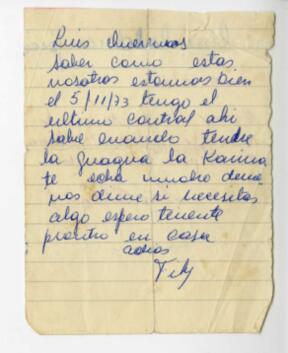 Luis queremos
saber como estas
nosotros estamos bien
el 5/11/73 tengo el
ultimo control ahi
sabre cuando tendre
la guagua la Karina
te echa mucho de me
nos dime si necesitas
algo espero tenerte
pronto en casa
adios